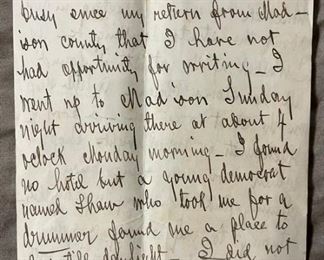 busy since my return from Mad-
ison county that I have not
had opportunity for writing_ I
went up to Mad'son Sunday
night arriving there at about 4
oclock Monday morning_ I found
no hotel but a young democrat
named Shaw who took me for a
drummer found me a place to
till daylight_ I did not